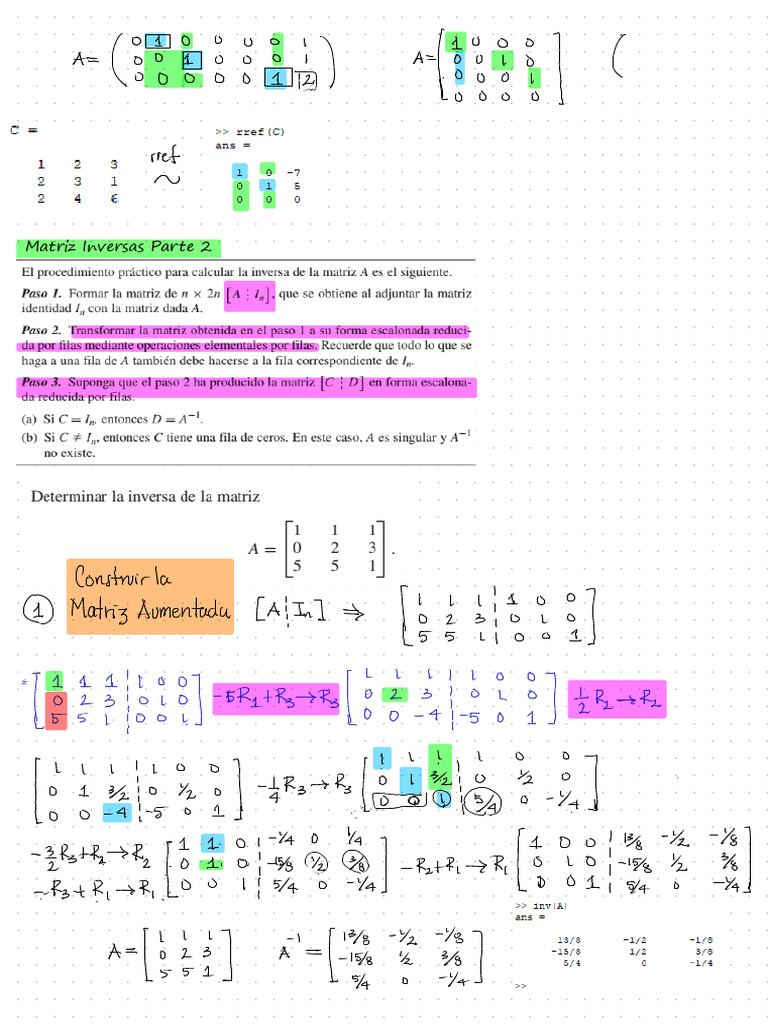 A = ( 0 1 0 0 0 0 0 1
0 0 1 0 0 0 0 1
0 0 0 0 0 0 1 12 )
A = [ 1 0 0 0
0 0 1 0
0 0 0 1
0 0 0 0 ]
(
C =
1 2 3
2 3 1
2 4 6
rref
~
>> rref(C)
ans =
1 0 -7
0 1 5
0 0 0
Matriz Inversas Parte 2
El procedimiento práctico para calcular la inversa de la matriz A es el siguiente.
Paso 1. Formar la matriz de n × 2n [A ⋮ Iₙ], que se obtiene al adjuntar la matriz
identidad Iₙ con la matriz dada A.
Paso 2. Transformar la matriz obtenida en el paso 1 a su forma escalonada reduci-
da por filas mediante operaciones elementales por filas. Recuerde que todo lo que se
haga a una fila de A también debe hacerse a la fila correspondiente de Iₙ.
Paso 3. Suponga que el paso 2 ha producido la matriz [C ⋮ D] en forma escalona-
da reducida por filas.
(a) Si C = Iₙ, entonces D = A⁻¹.
(b) Si C ≠ Iₙ, entonces C tiene una fila de ceros. En este caso, A es singular y A⁻¹
no existe.
Determinar la inversa de la matriz
A = [ 1 1 1
0 2 3
5 5 1 ].
1 Construir la
Matriz Aumentada
[A ¦ In] ⇒ [ 1 1 1 ¦ 1 0 0
0 2 3 ¦ 0 1 0
5 5 1 ¦ 0 0 1 ]
* [ 1 1 1 ¦ 1 0 0
0 2 3 ¦ 0 1 0
5 5 1 ¦ 0 0 1 ]
-5R₁+R₃→R₃
[ 1 1 1 ¦ 1 0 0
0 2 3 ¦ 0 1 0
0 0 -4 ¦ -5 0 1 ]
1/2 R₂→R₂
[ 1 1 1 ¦ 1 0 0
0 1 3/2 ¦ 0 1/2 0
0 0 -4 ¦ -5 0 1 ]
-1/4 R₃→R₃
[ 1 1 1 ¦ 1 0 0
0 1 3/2 ¦ 0 1/2 0
0 0 1 ¦ 5/4 0 -1/4 ]
-3/2 R₃+R₂→R₂
-R₃+R₁→R₁
[ 1 1 0 ¦ -1/4 0 1/4
0 1 0 ¦ -15/8 1/2 3/8
0 0 1 ¦ 5/4 0 -1/4 ]
-R₂+R₁→R₁
[ 1 0 0 ¦ 13/8 -1/2 -1/8
0 1 0 ¦ -15/8 1/2 3/8
0 0 1 ¦ 5/4 0 -1/4 ]
A = [ 1 1 1
0 2 3
5 5 1 ]
A⁻¹ = [ 13/8 -1/2 -1/8
-15/8 1/2 3/8
5/4 0 -1/4 ]
>> inv(A)
ans =
13/8 -1/2 -1/8
-15/8 1/2 3/8
5/4 0 -1/4
>>